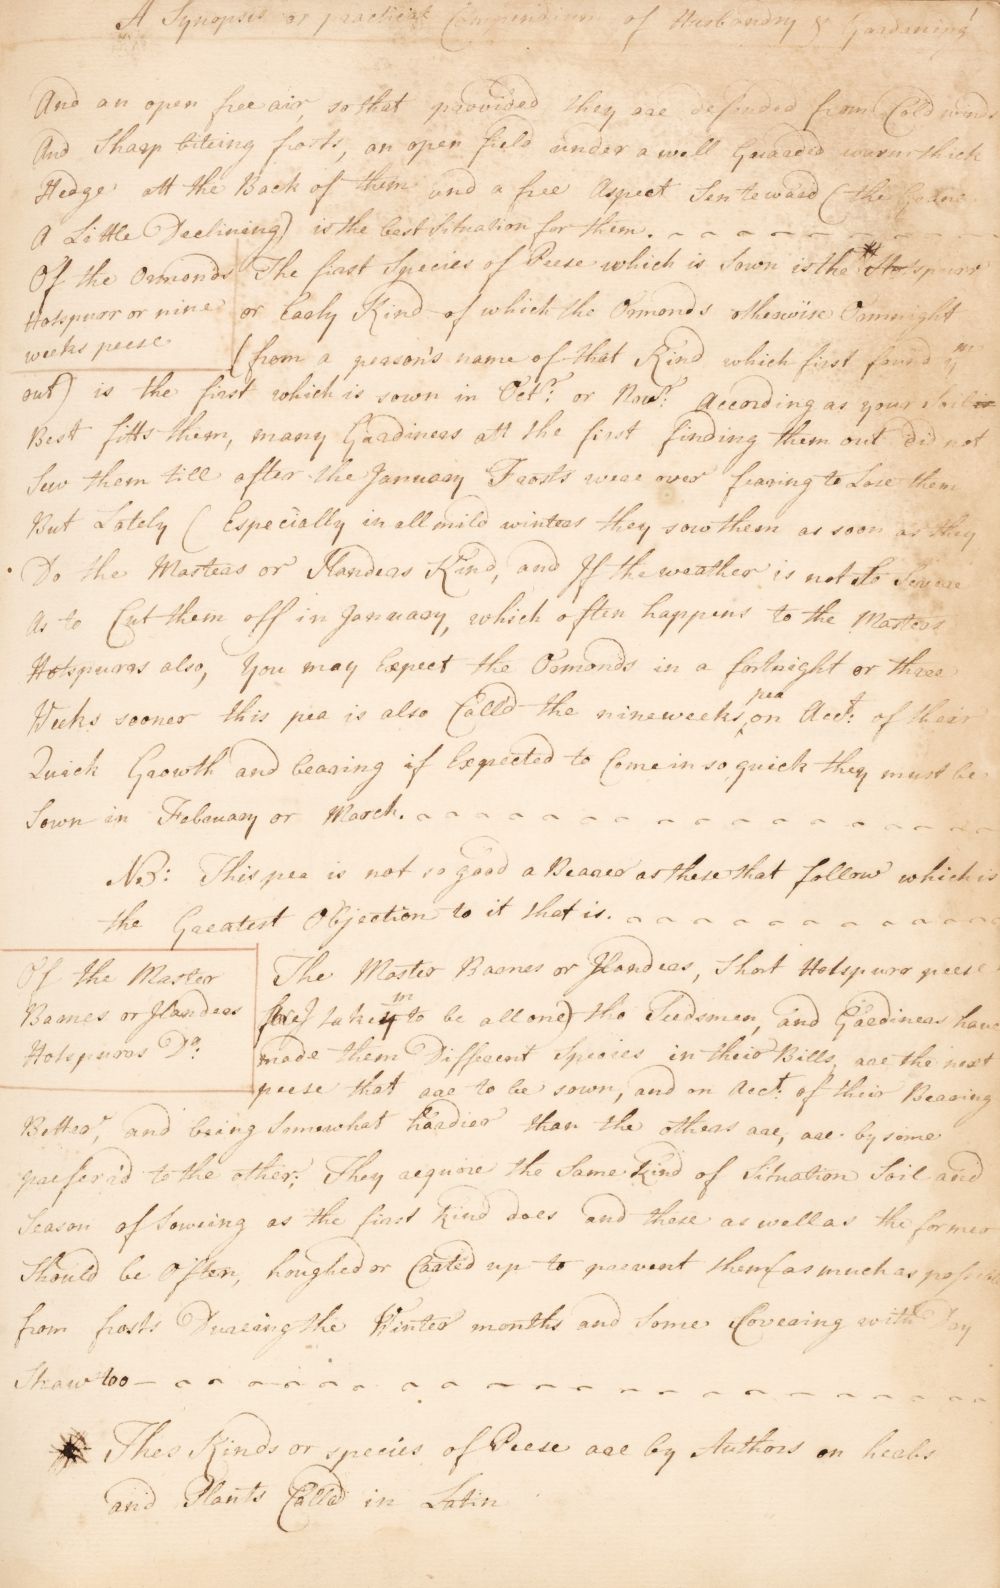 A Synopsis or practical Compendium of Husbandry & Gardening
And an open free air, so that provided they are defended from Cold winds
And Sharp biteing frosts, an open field under a well Guarded warm thick
Hedge att the Back of them and a free Aspect
A Little Declining) is the best Situation for them.
Of the Ormonds
Hotspurr or nine
weeks peese
The first Species of Peese which is Sown is the Hotspurr
or Early Kind of which the Ormonds otherwise Ormnight
(from a person's name of that Kind which first found 'm
out) is the first which is sown in Octr: or Novr: According as your Soil
Best fitts them, many Gardiners att the first finding them out did not
Sew them till after the January Frosts were over fearing to Lose them
But Lately (Especially in all mild winters they sow them as soon as they
Do the Masters or Flanders Kind, and If the weather is not So Severe
As to Cut them off in January, which often happens to the Masters
Hotspurrs also, You may Expect the Ormonds in a fortnight or three
Weeks sooner this pea is also Call'd the nineweeks pea on Acct: of their
Quick Growth and bearing if Expected to Come in so quick they must be
Sown in February or March.
NB: This pea is not so good a Bearer as these that follow which is
the Greatest Objection to it that is.
Of the Master
Barnes or Flanders
Hotspurrs Do:
The Master Barnes or Flanders, Short Hotspurr peese
(for I take 'm to be all one) tho Seedsmen, and Gardiners have
made them Different Species in their Bills, are the next
peese that are to be sown, and on Acct: of their Bearing
Better, and being Somewhat hardier than the others are, are by some
prefer'd to the other; They require the Same Kind of Situation Soil and
Season of Soweing as the first Kind does and these as well as the former
Should be Often, houghed or Earted up to prevent them (as much as possible
from frosts Dureing the Winter months and Some Covering with Day
Straw too
Thes Kinds or species of Peese are by Authors on hearbs
and Plants Called in Latin